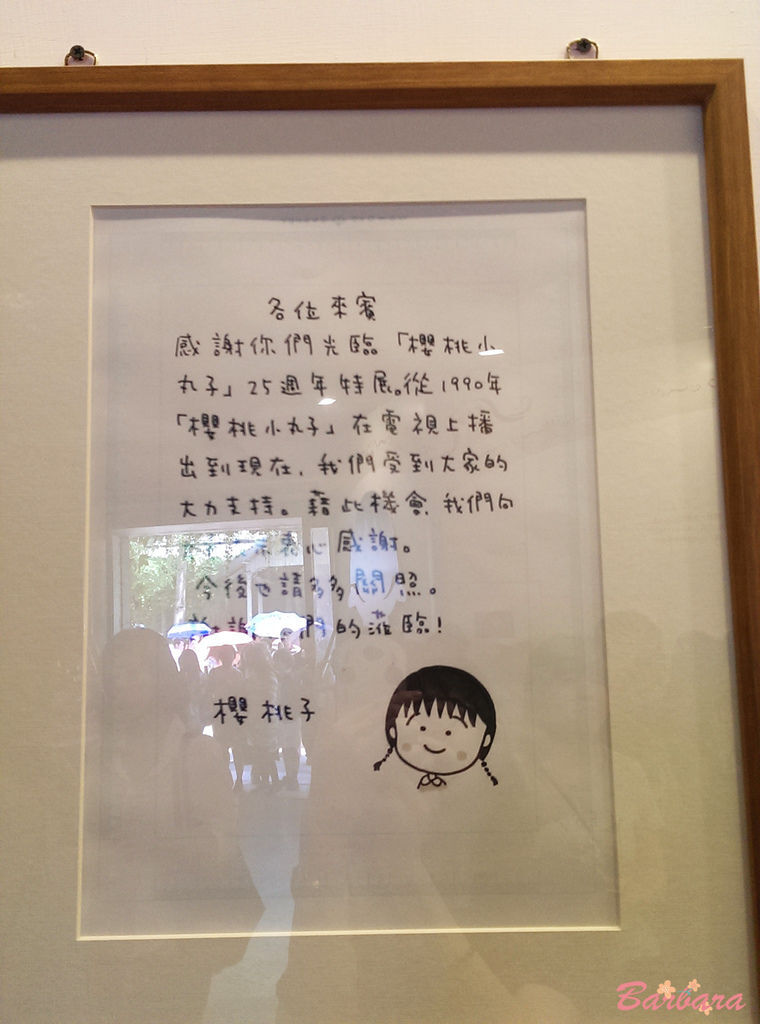 各位來賓
感謝你們光臨「櫻桃小
丸子」25週年特展。從1990年
「櫻桃小丸子」在電視上播
出到現在，我們受到大家的
大力支持。藉此機會，我們向
心感謝。
今後也請多多關照。
們的蒞臨！
櫻桃子
Barbara